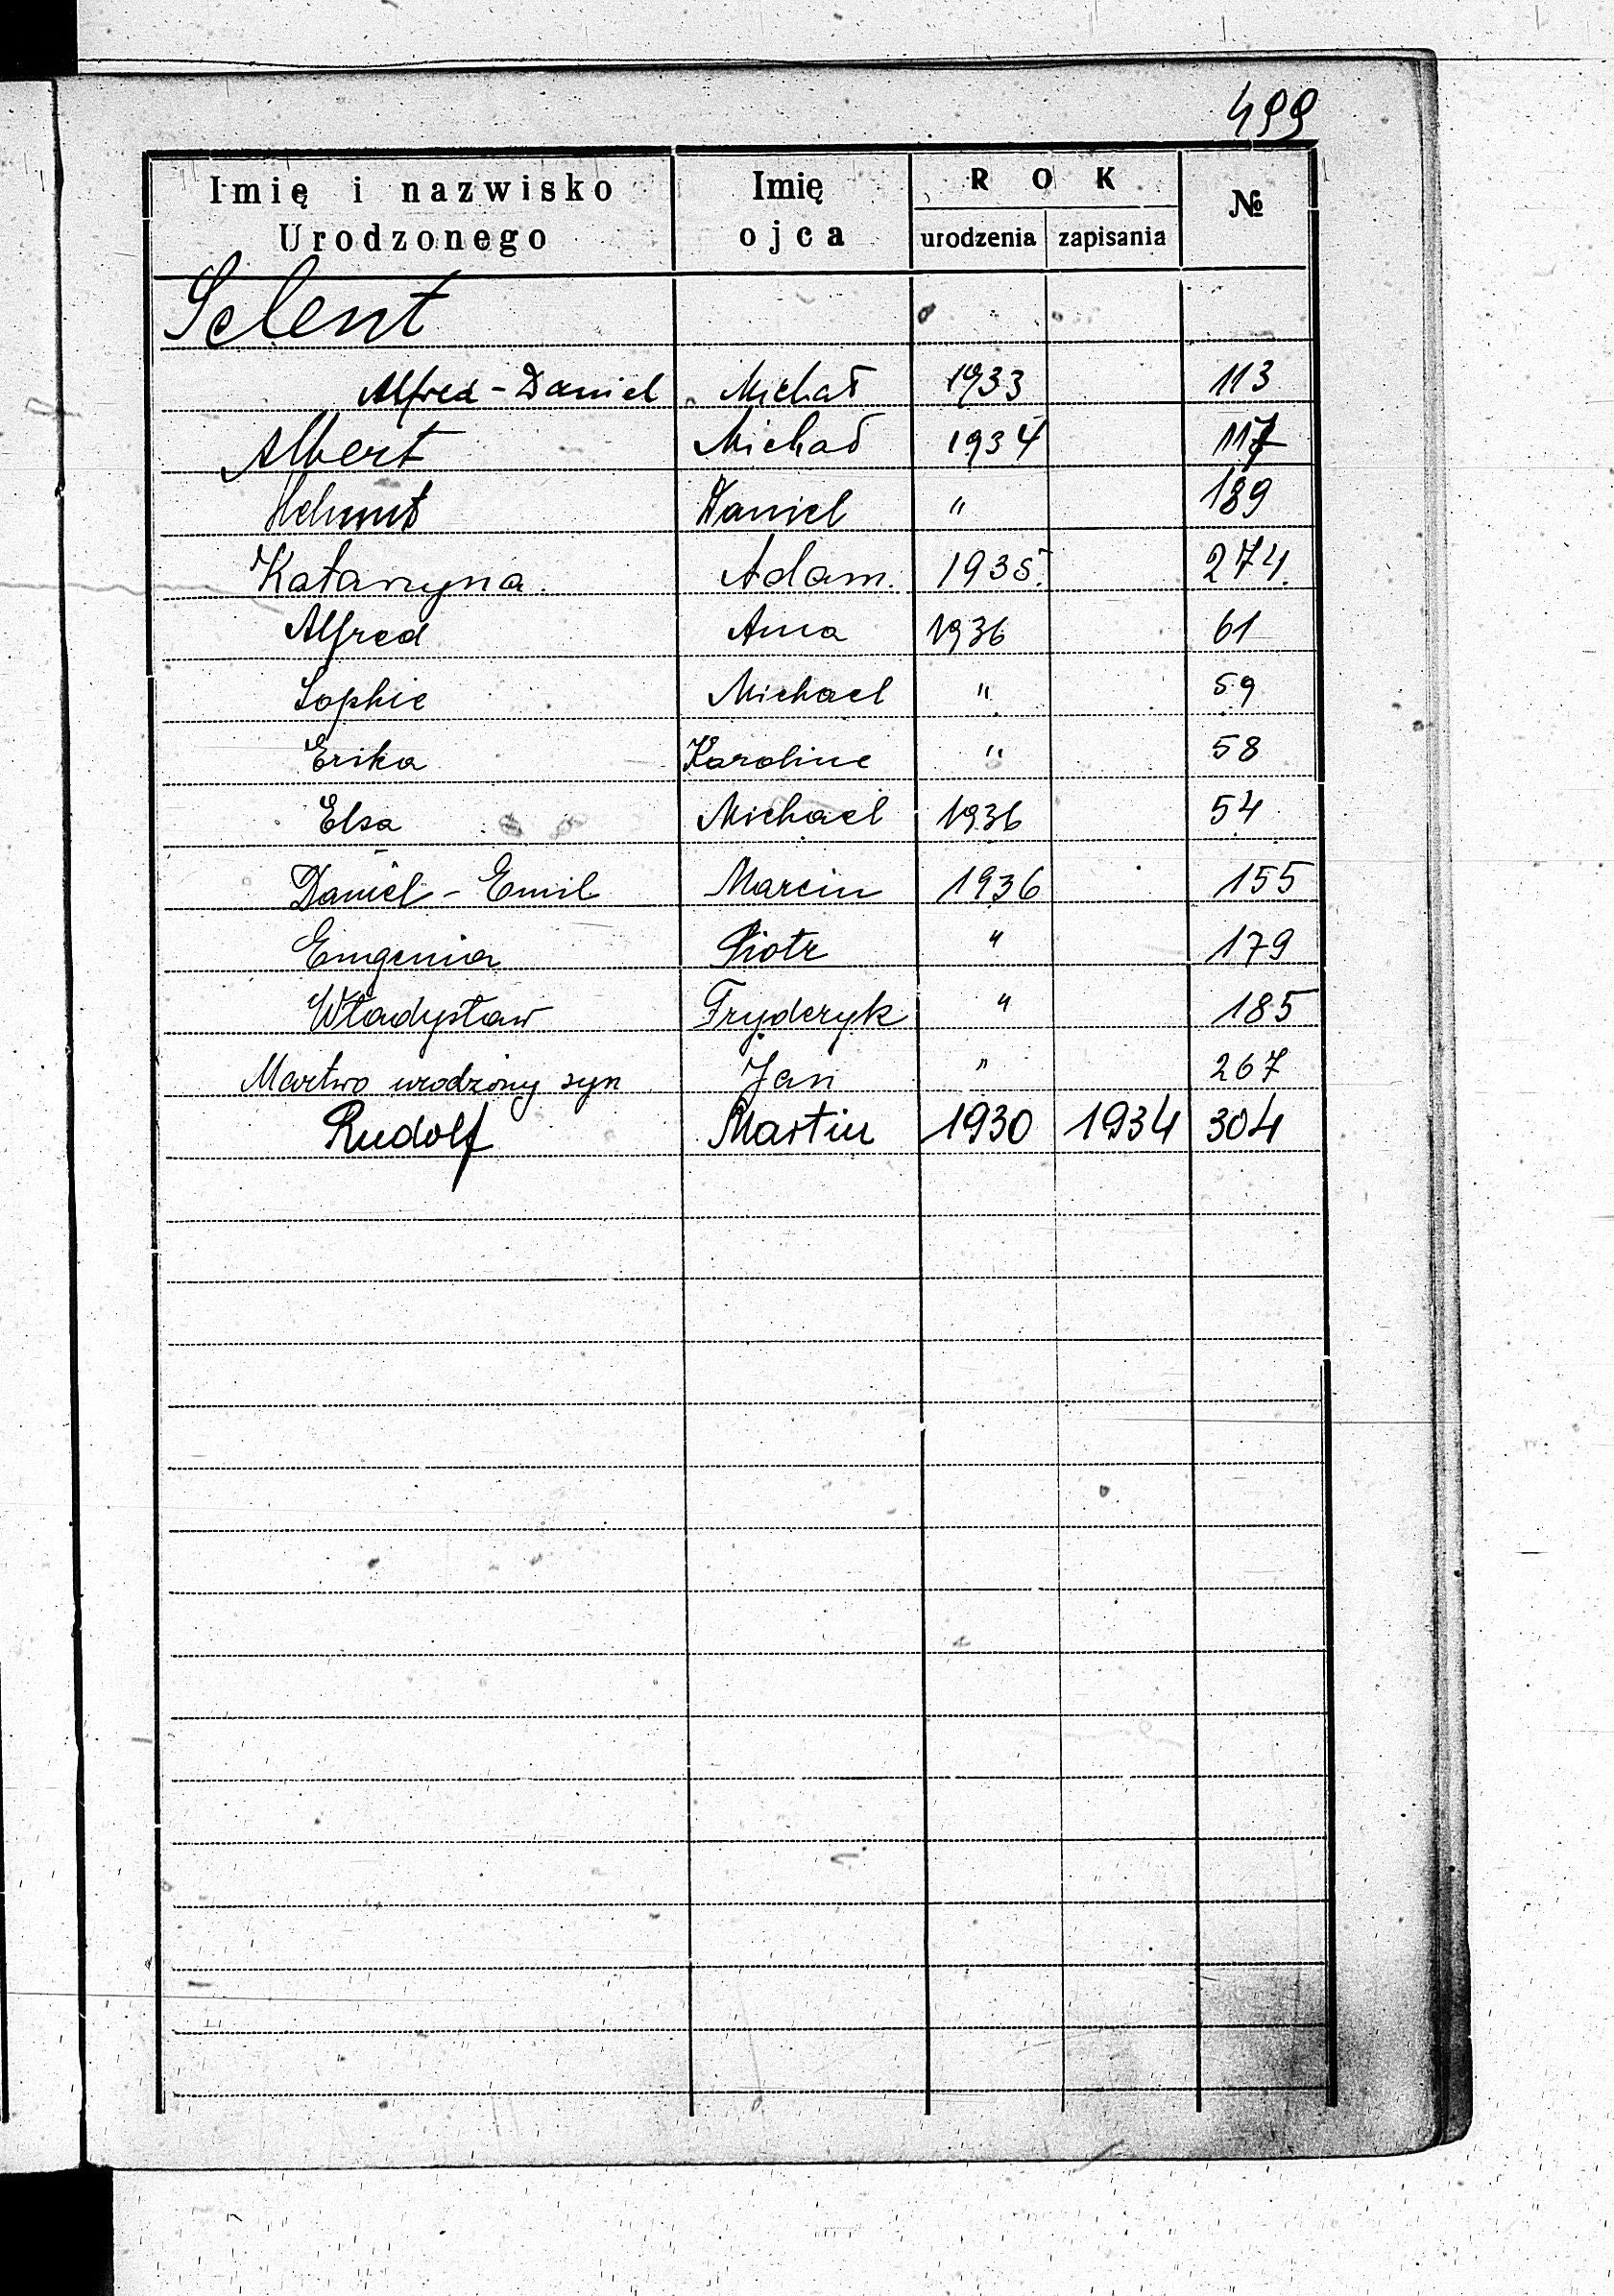 499
Imię i nazwisko Urodzonego Imię ojca ROK urodzenia zapisania №
Selent
Alfred - Daniel Michał 1933 113
Albert Michał 1934 117
Helmut Daniel " 189
Katarzyna. Adam. 1935. 274.
Alfred Anna 1936 61
Sophie Michael " 59
Erika Karoline " 58
Elsa Michael 1936 54
Daniel - Emil Marcin 1936 155
Eugenia Piotr " 179
Władysław Fryderyk " 185
Martwo urodzony syn Jan " 267
Rudolf Martin 1930 1934 304